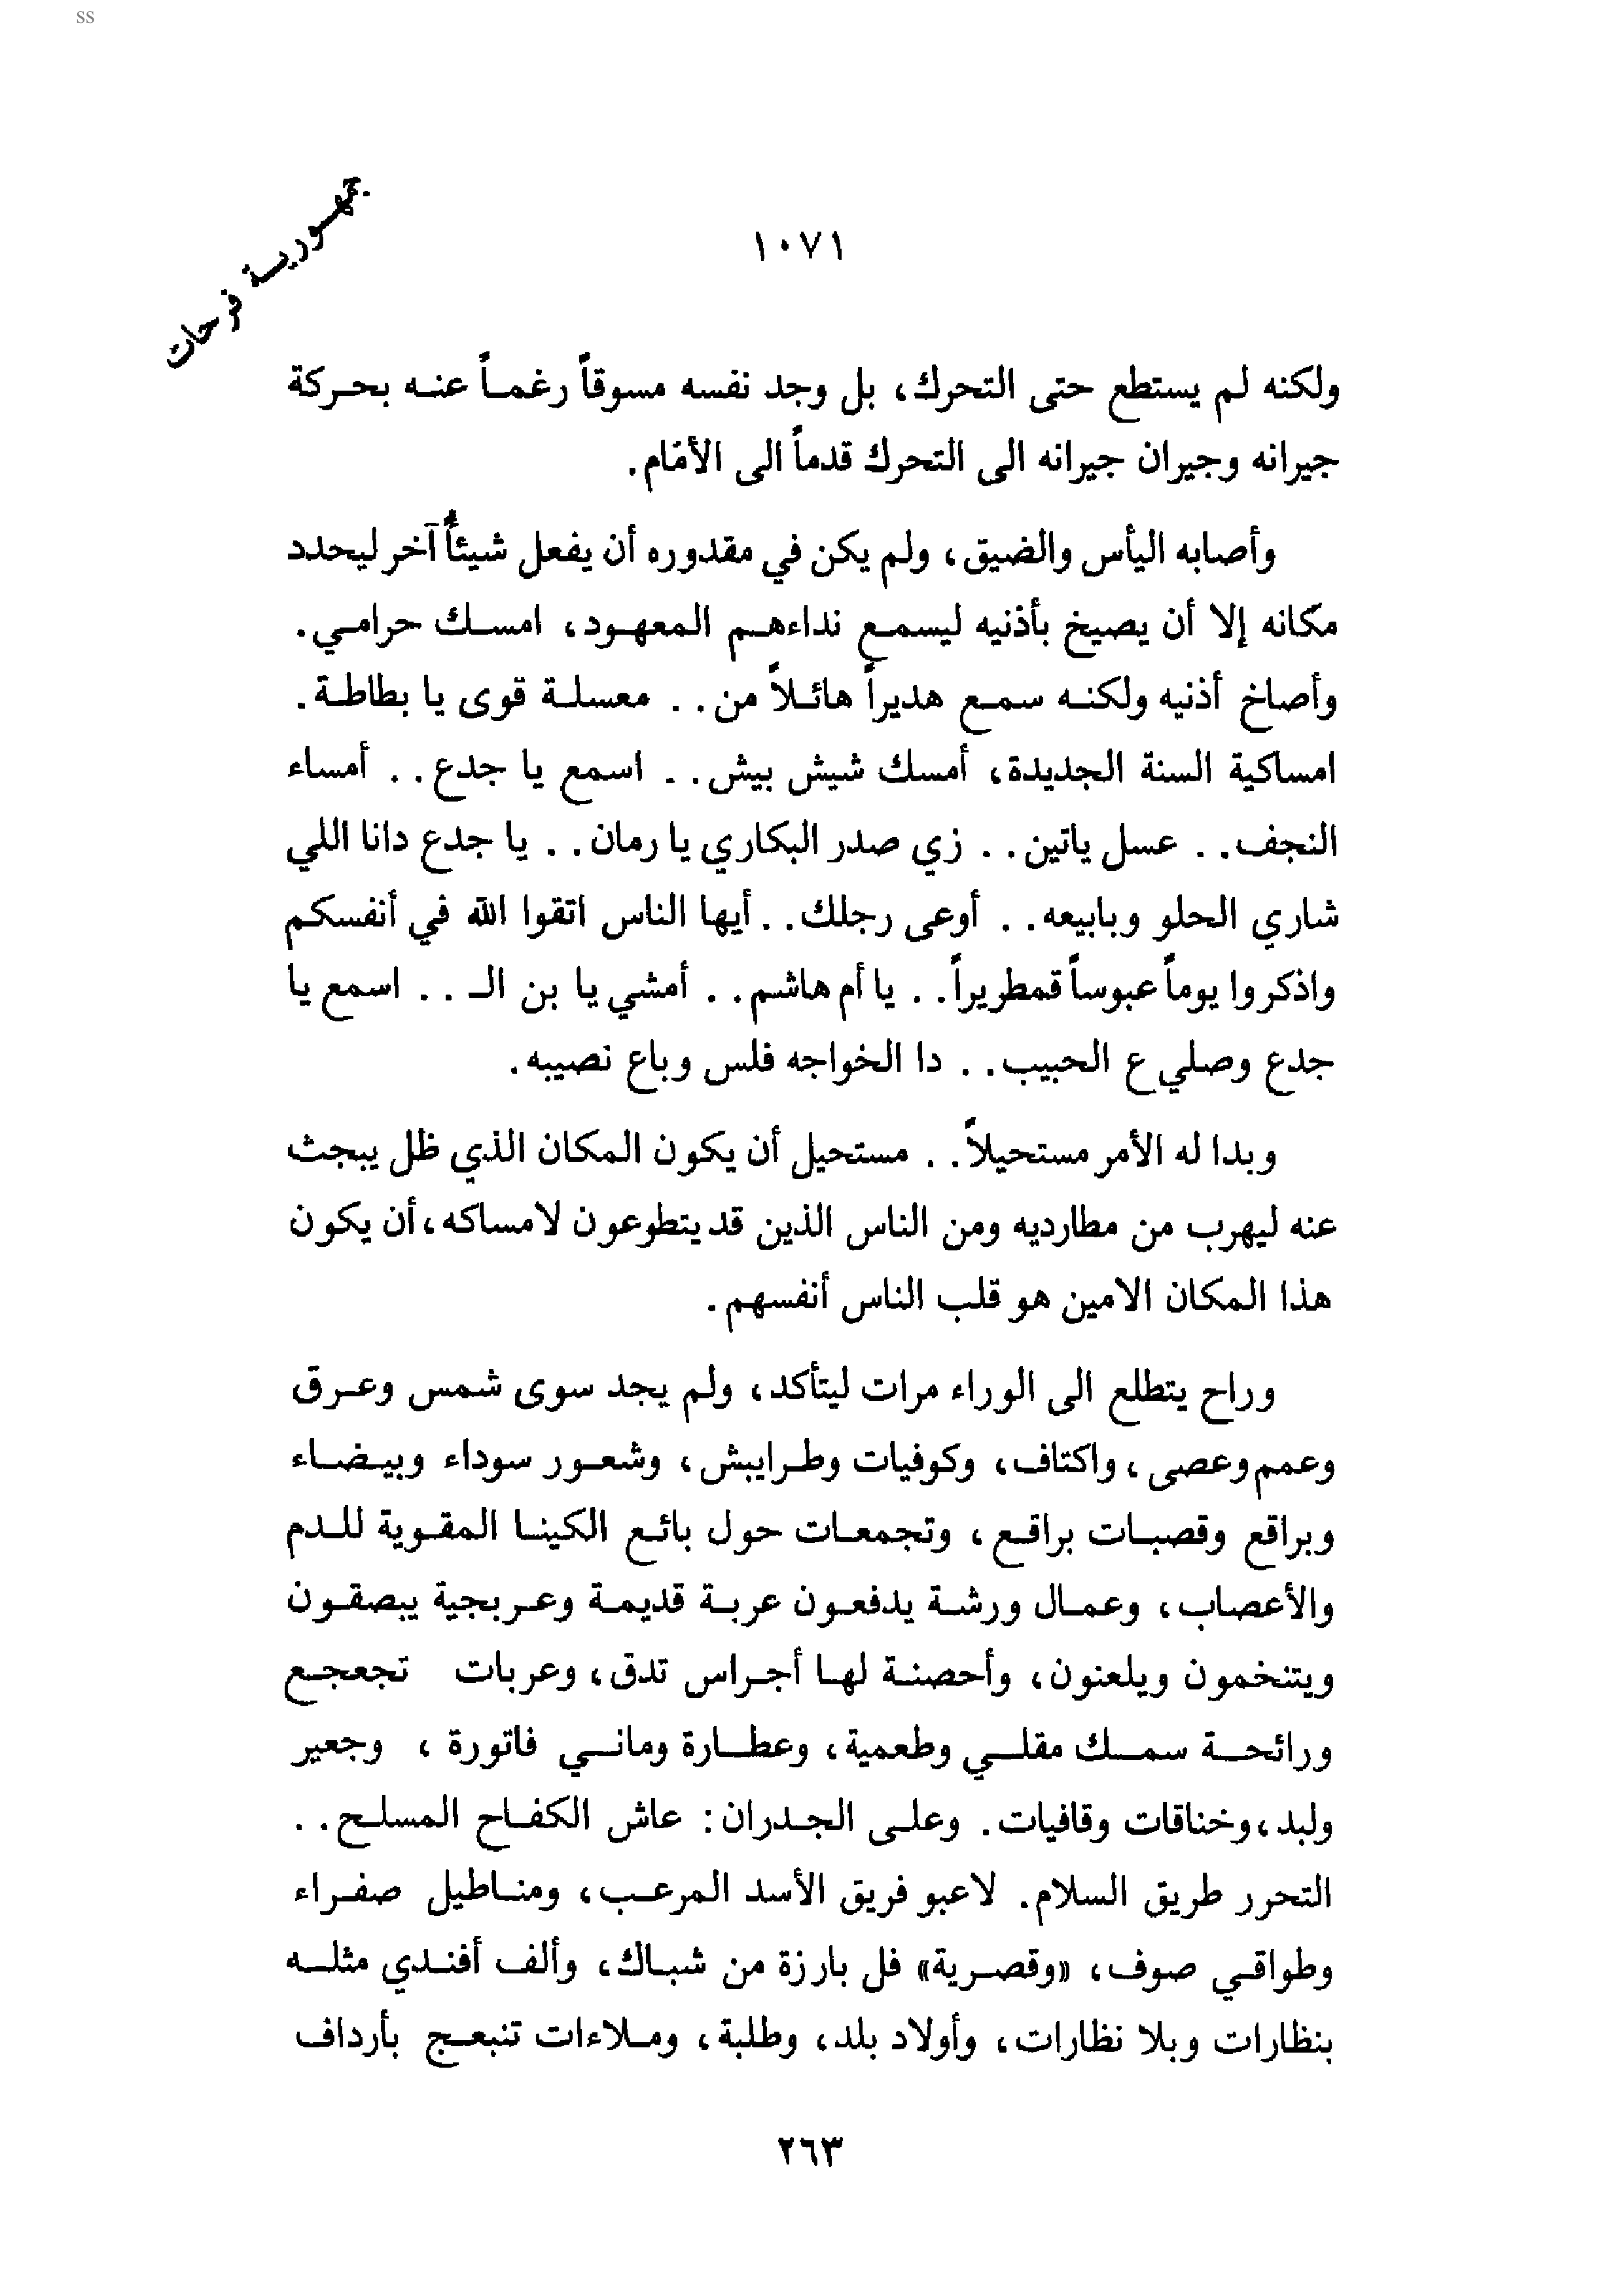 ss
جمهورية فرحات
١٠٧١
ولكنه لم يستطع حتى التحرك، بل وجد نفسه مسوقاً رغماً عنه بحركة
جيرانه وجيران جيرانه الى التحرك قدماً الى الأمام.
وأصابه اليأس والضيق، ولم يكن في مقدوره أن يفعل شيئاً آخر ليحدد
مكانه إلا أن يصيخ بأذنيه ليسمع نداءهم المعهود، امسك حرامي.
وأصاخ أذنيه ولكنه سمع هديراً هائلاً من.. معسلة قوى يا بطاطة.
امساكية السنة الجديدة، أمسك شيش بيش.. اسمع يا جدع.. أمساء
النجف.. عسل ياتين.. زي صدر البكاري يا رمان.. يا جدع دانا اللي
شاري الحلو وبابيعه.. أوعى رجلك.. أيها الناس اتقوا الله في أنفسكم
واذكروا يوماً عبوساً قمطريراً.. يا أم هاشم.. أمشي يا بن الـ.. اسمع يا
جدع وصلي ع الحبيب.. دا الخواجه فلس وباع نصيبه.
وبدا له الأمر مستحيلاً.. مستحيل أن يكون المكان الذي ظل يبجث
عنه ليهرب من مطارديه ومن الناس الذين قد يتطوعون لامساكه، أن يكون
هذا المكان الامين هو قلب الناس أنفسهم.
وراح يتطلع الى الوراء مرات ليتأكد، ولم يجد سوى شمس وعرق
وعمم وعصى، واكتاف، وكوفيات وطرايبش، وشعور سوداء وبيضاء
وبراقع وقصبات براقع، وتجمعات حول بائع الكينا المقوية للدم
والأعصاب، وعمال ورشة يدفعون عربة قديمة وعربجية يبصقون
ويتنخمون ويلعنون، وأحصنة لها أجراس تدق، وعربات تجعجع
ورائحة سمك مقلي وطعمية، وعطارة وماني فاتورة، وجعير
ولبد، وخناقات وقافيات. وعلى الجدران: عاش الكفاح المسلح..
التحرر طريق السلام. لاعبو فريق الأسد المرعب، ومناطيل صفراء
وطواقي صوف، «وقصرية» فل بارزة من شباك، وألف أفندي مثله
بنظارات وبلا نظارات، وأولاد بلد، وطلبة، وملاءات تنبعج بأرداف
٢٦٣